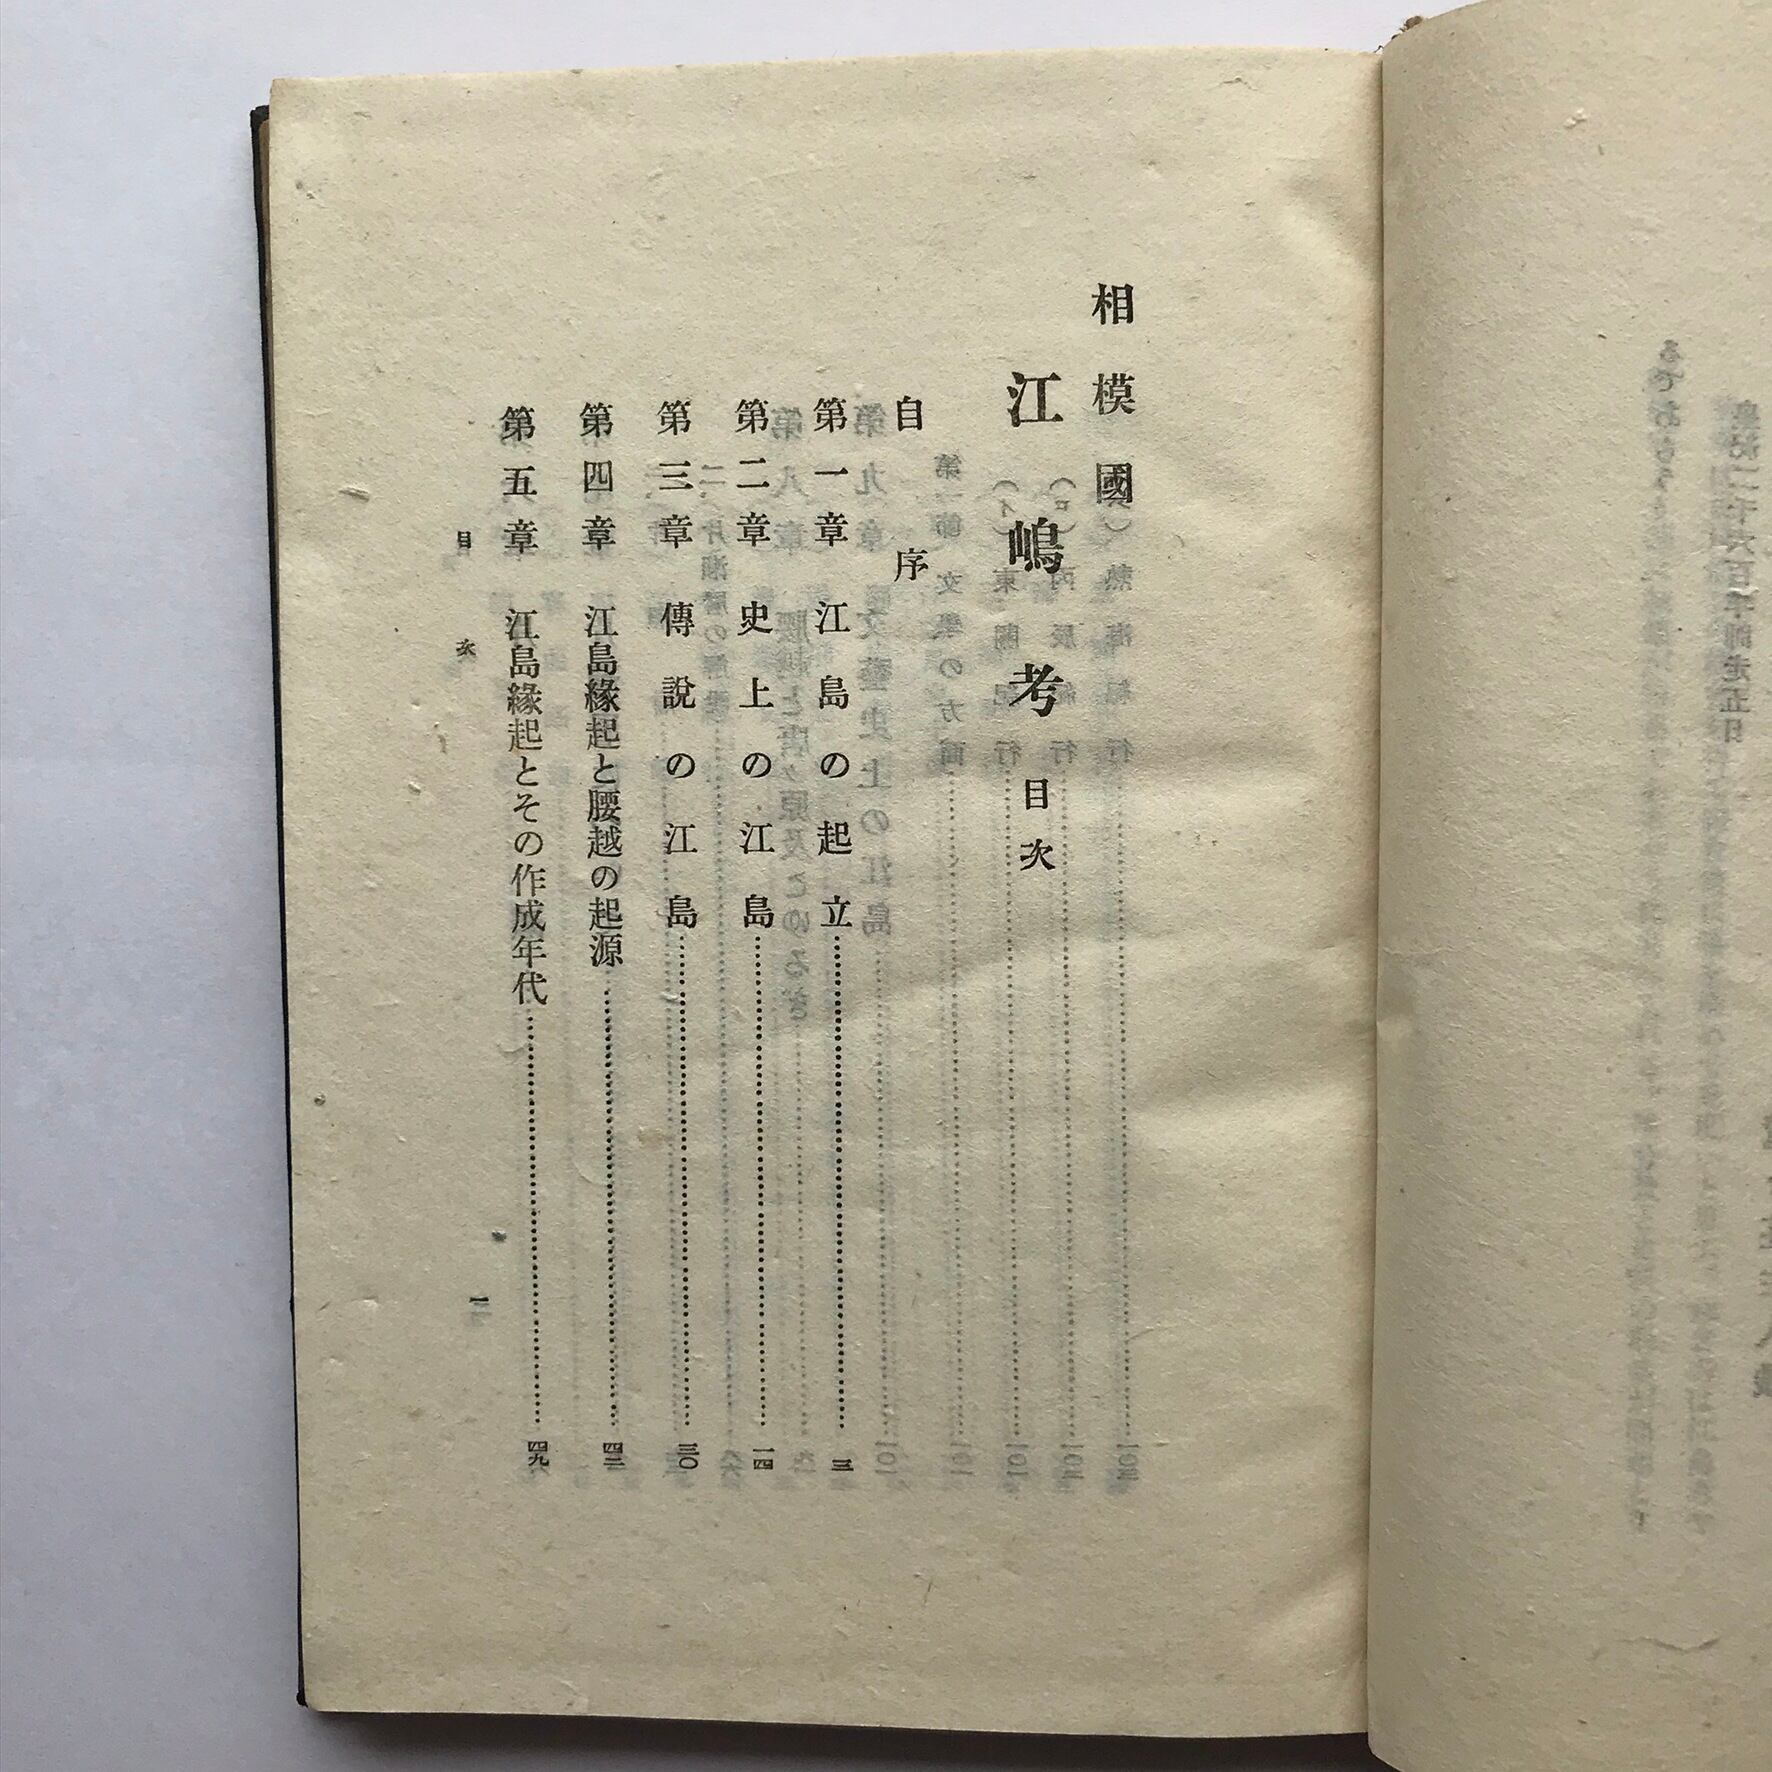 相模國
江嶋考 目次
自序
第一章 江島の起立……三
第二章 史上の江島……一四
第三章 傳說の江島……三〇
第四章 江島緣起と腰越の起源……四二
第五章 江島緣起とその作成年代……四九
目次 一